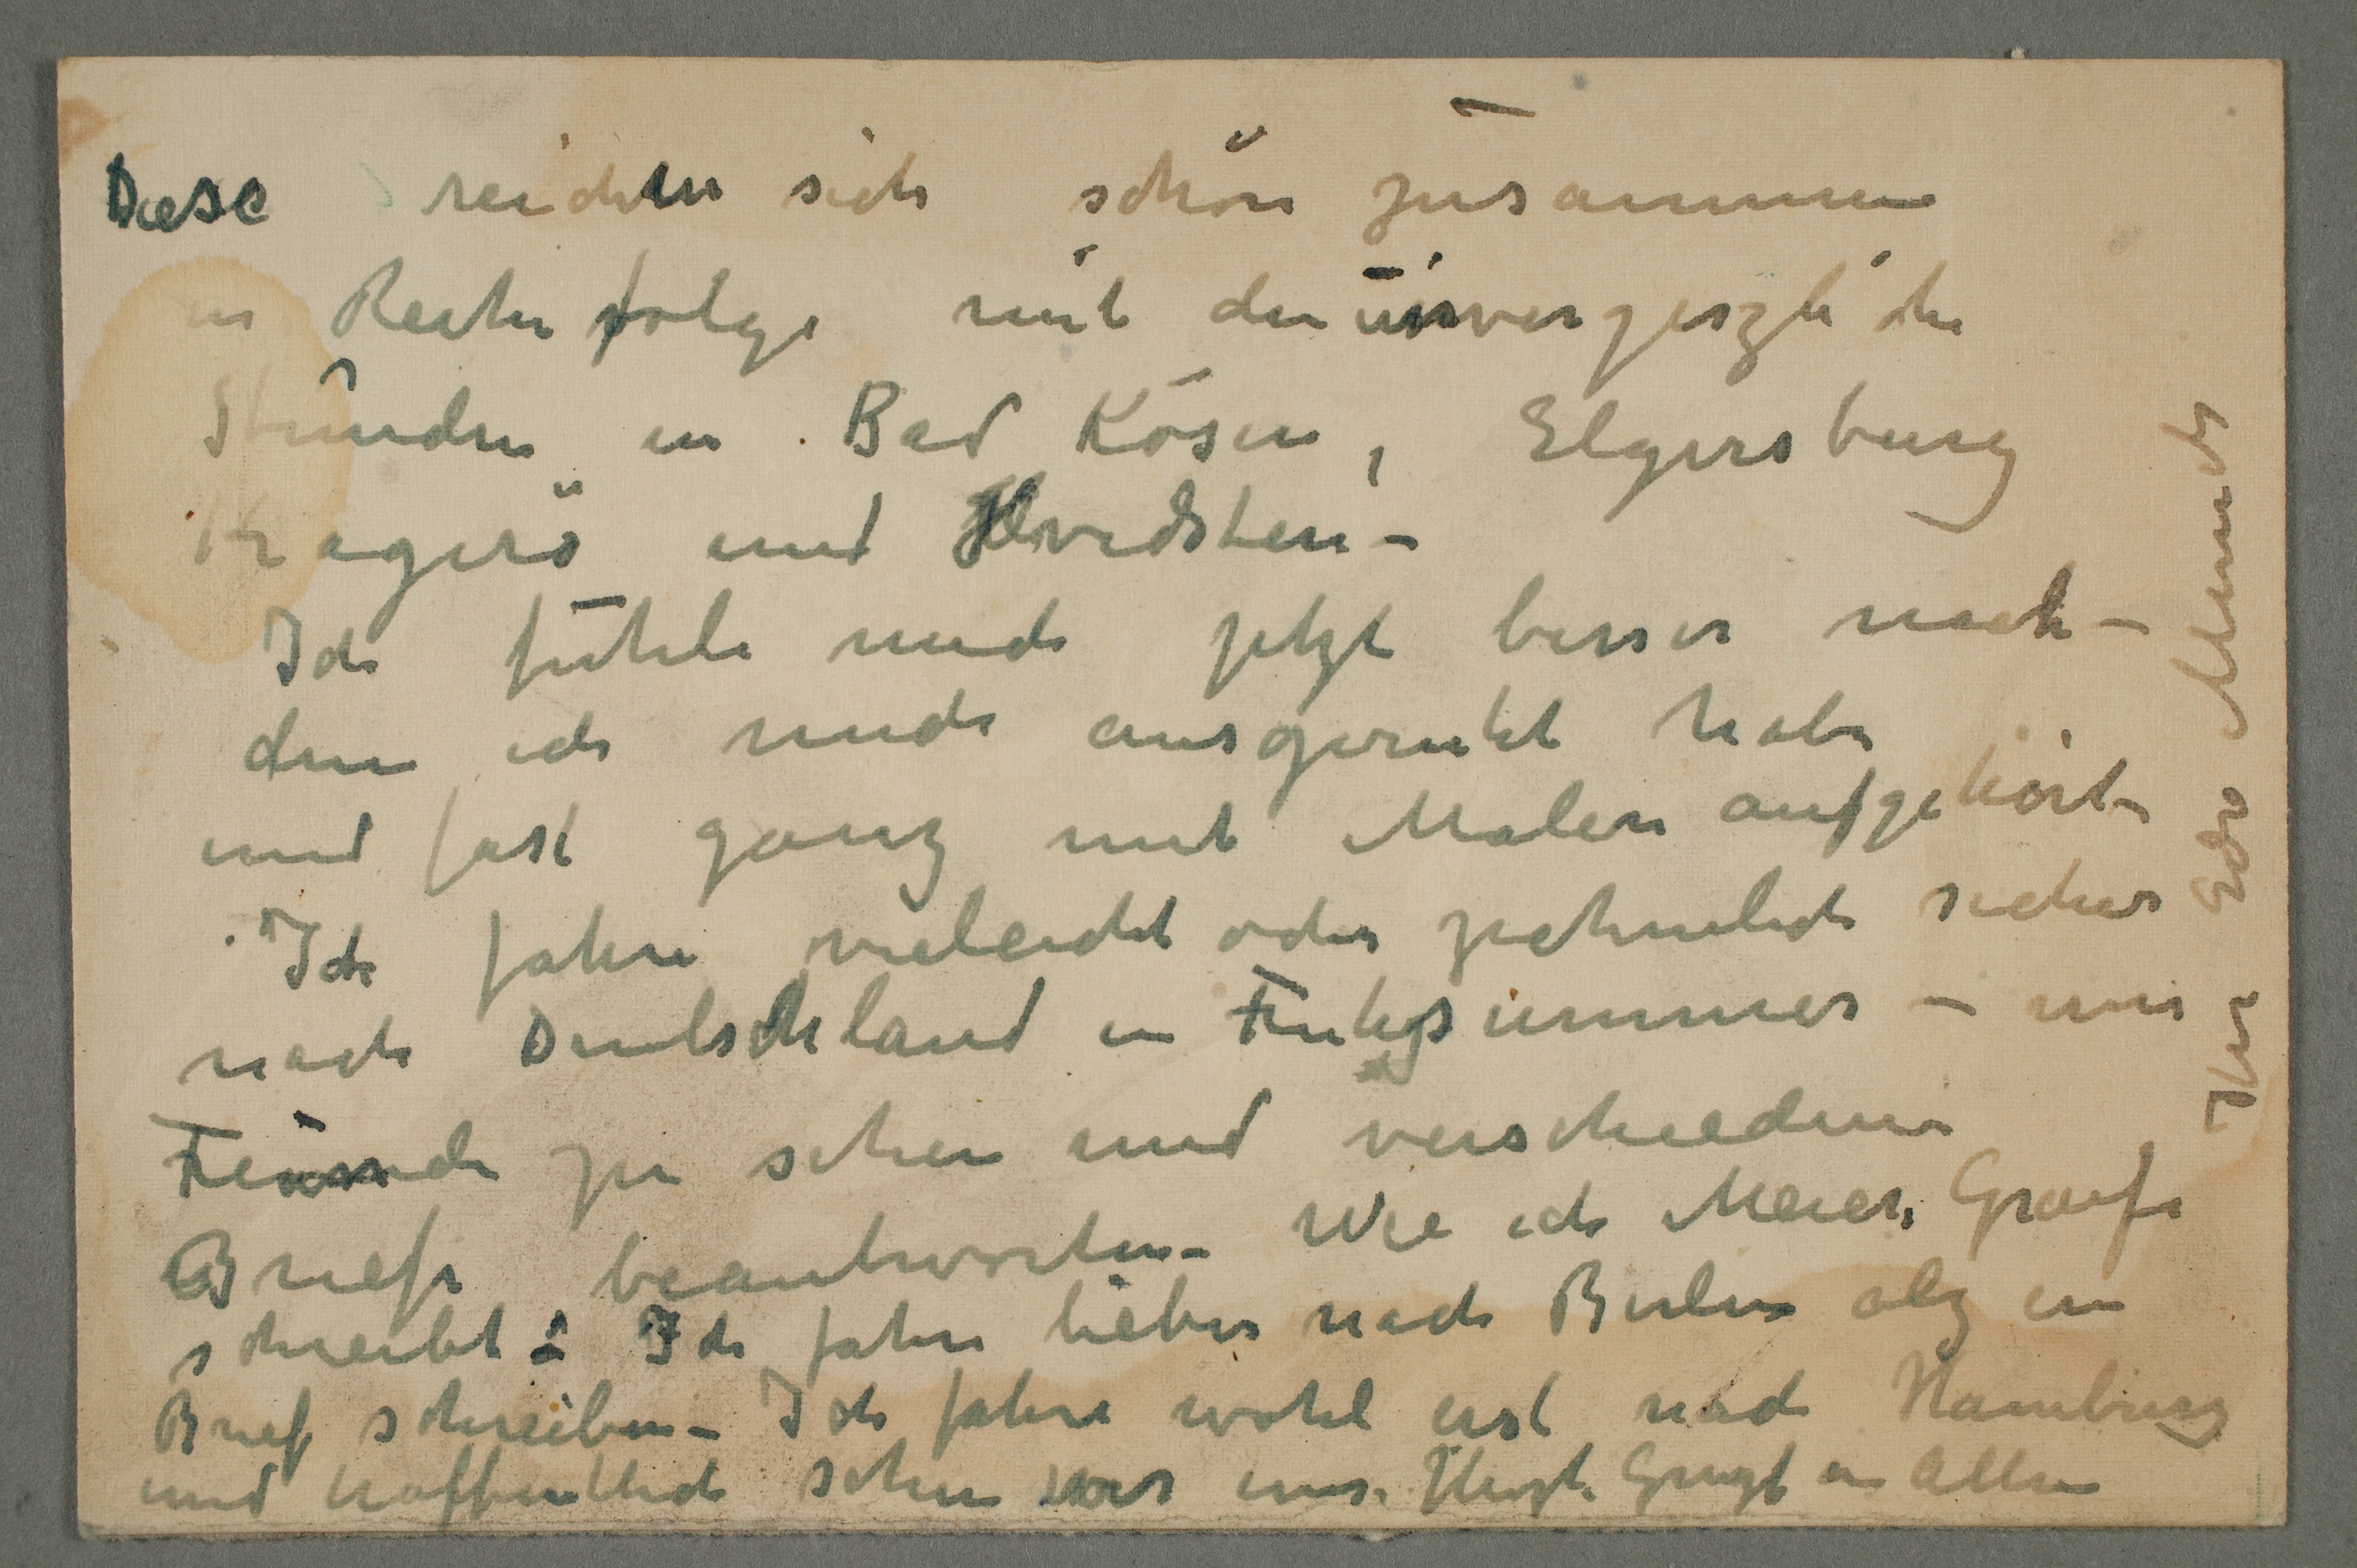 Diese reichen sich schön zusammen
in Reihefolge mit den unvergeszliche
Stunden in Bad Kösen, Elgersburg
Kragerö und Hvidsten –
Ich fühle mich jetzt besser nach-
dem ich mich ausgeruht habe
und fast ganz mit Malen aufgehört –
Ich fahre vieleicht oder ziehmlich sicher
nach Deutschland in Fruhsummer – um
Freunde zu sehen und verschiedene
Briefe beantworten – Wie ich Meier Graefe
schreibt: Ich fahre lieber nach Berlin alz ein
Brief schreiben – Ich fahre wohl erst nach Hamburg
und hoffentlich sehen wir uns. Herzl. Gruzt an Allen
Ihr Edv Munch